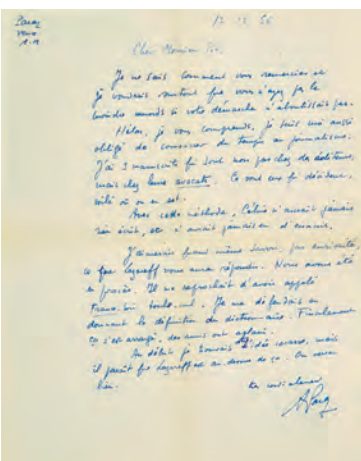 Paraz
Vence
A-M
12 12 56
Cher Monsieur
Je ne sais comment vous remercier et
je voudrais surtout que vous n'ayez pas le
moindre remords si votre démarche n'aboutissait pas.
Hélas, je vous comprends, je suis moi aussi
obligé de consacrer du temps au journalisme.
J'ai 3 manuscrits qui sont non pas chez des éditeurs,
mais chez leurs avocats. Ce sont eux qui décident,
voilà où on en est.
Avec cette méthode, Céline n'aurait jamais
rien écrit, et n'aurait jamais eu d'ennuis.
J'aimerais quand même savoir, par curiosité,
ce que Lazareff vous aura répondu. Nous avons été
en procès. Il me reprochait d'avoir appelé
Je me défendais en
donnant la définition du dictionnaire. Finalement
ça s'est arrangé, des amis ont aplani.
Au début je trouvais idée, mais
il paraît que Lazareff est au dessus de ça. On verra
bien.
cordialement
A Paraz